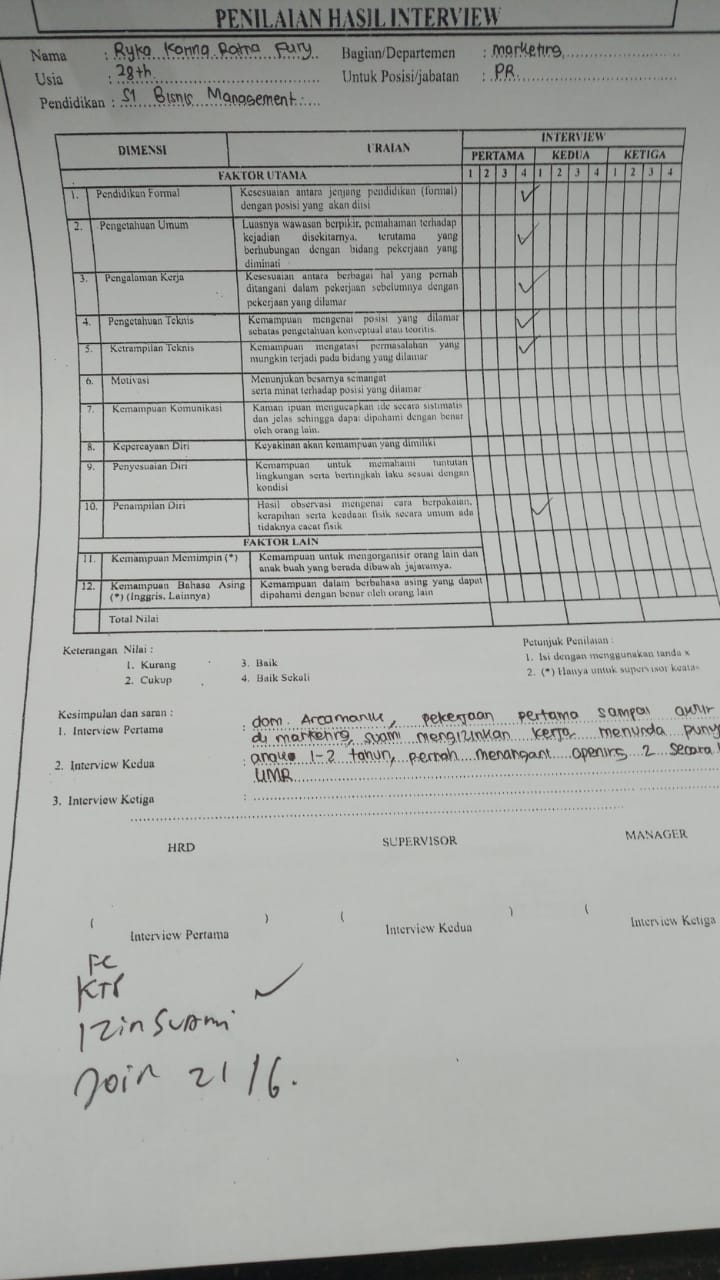 PENILAIAN HASIL INTERVIEW
Nama : Ryka Karina Ratna Fury Bagian/Departemen : marketing
Usia : 28th Untuk Posisi/jabatan : PR
Pendidikan : S1 Bisnis Management
DIMENSI URAIAN INTERVIEW
PERTAMA KEDUA KETIGA
FAKTOR UTAMA 1 2 3 4 1 2 3 4 1 2 3 4
1. Pendidikan Formal Kesesuaian antara jenjang pendidikan (formal)
dengan posisi yang akan diisi ✓
2. Pengetahuan Umum Luasnya wawasan berpikir, pemahaman terhadap
kejadian disekitarnya, terutama yang
berhubungan dengan bidang pekerjaan yang
diminati ✓
3. Pengalaman Kerja Kesesuaian antara berbagai hal yang pernah
ditangani dalam pekerjaan sebelumnya dengan
pekerjaan yang dilamar ✓
4. Pengetahuan Teknis Kemampuan mengenai posisi yang dilamar
sebatas pengetahuan konseptual atau teoritis. ✓
5. Ketrampilan Teknis Kemampuan mengatasi permasalahan yang
mungkin terjadi pada bidang yang dilamar ✓
6. Motivasi Menunjukan besarnya semangat
serta minat terhadap posisi yang dilamar
7. Kemampuan Komunikasi mengucapkan ide secara sistimatis
dan jelas sehingga dapat dipahami dengan benar
oleh orang lain.
8. Kepercayaan Diri Keyakinan akan kemampuan yang dimiliki
9. Penyesuaian Diri Kemampuan untuk memahami tuntutan
lingkungan serta bertingkah laku sesuai dengan
kondisi
10. Penampilan Diri Hasil observasi mengenai cara berpakaian,
kerapihan serta keadaan fisik secara umum ada
tidaknya cacat fisik ✓
FAKTOR LAIN
11. Kemampuan Memimpin (*) Kemampuan untuk mengorganisir orang lain dan
anak buah yang berada dibawah jajarannya.
12. Kemampuan Bahasa Asing Kemampuan dalam berbahasa asing yang dapat
(*) (Inggris, Lainnya) dipahami dengan benar oleh orang lain
Total Nilai
Keterangan Nilai :
1. Kurang 3. Baik
2. Cukup 4. Baik Sekali
Petunjuk Penilaian :
1. Isi dengan menggunakan tanda x
2. (*) Hanya untuk supervisor keatas
Kesimpulan dan saran :
1. Interview Pertama : dom. Arcamanik, pekerjaan pertama sampai akhir
di marketing, suami mengizinkan kerja, menunda puny
2. Interview Kedua : 1-2 tahun, pernah menangani opening 2 secara
UMR
3. Interview Ketiga :
HRD SUPERVISOR MANAGER
( ) ( ) (
Interview Pertama Interview Kedua Interview Ketiga
FC
KTP
Izin Suami ✓
Join 21/6.